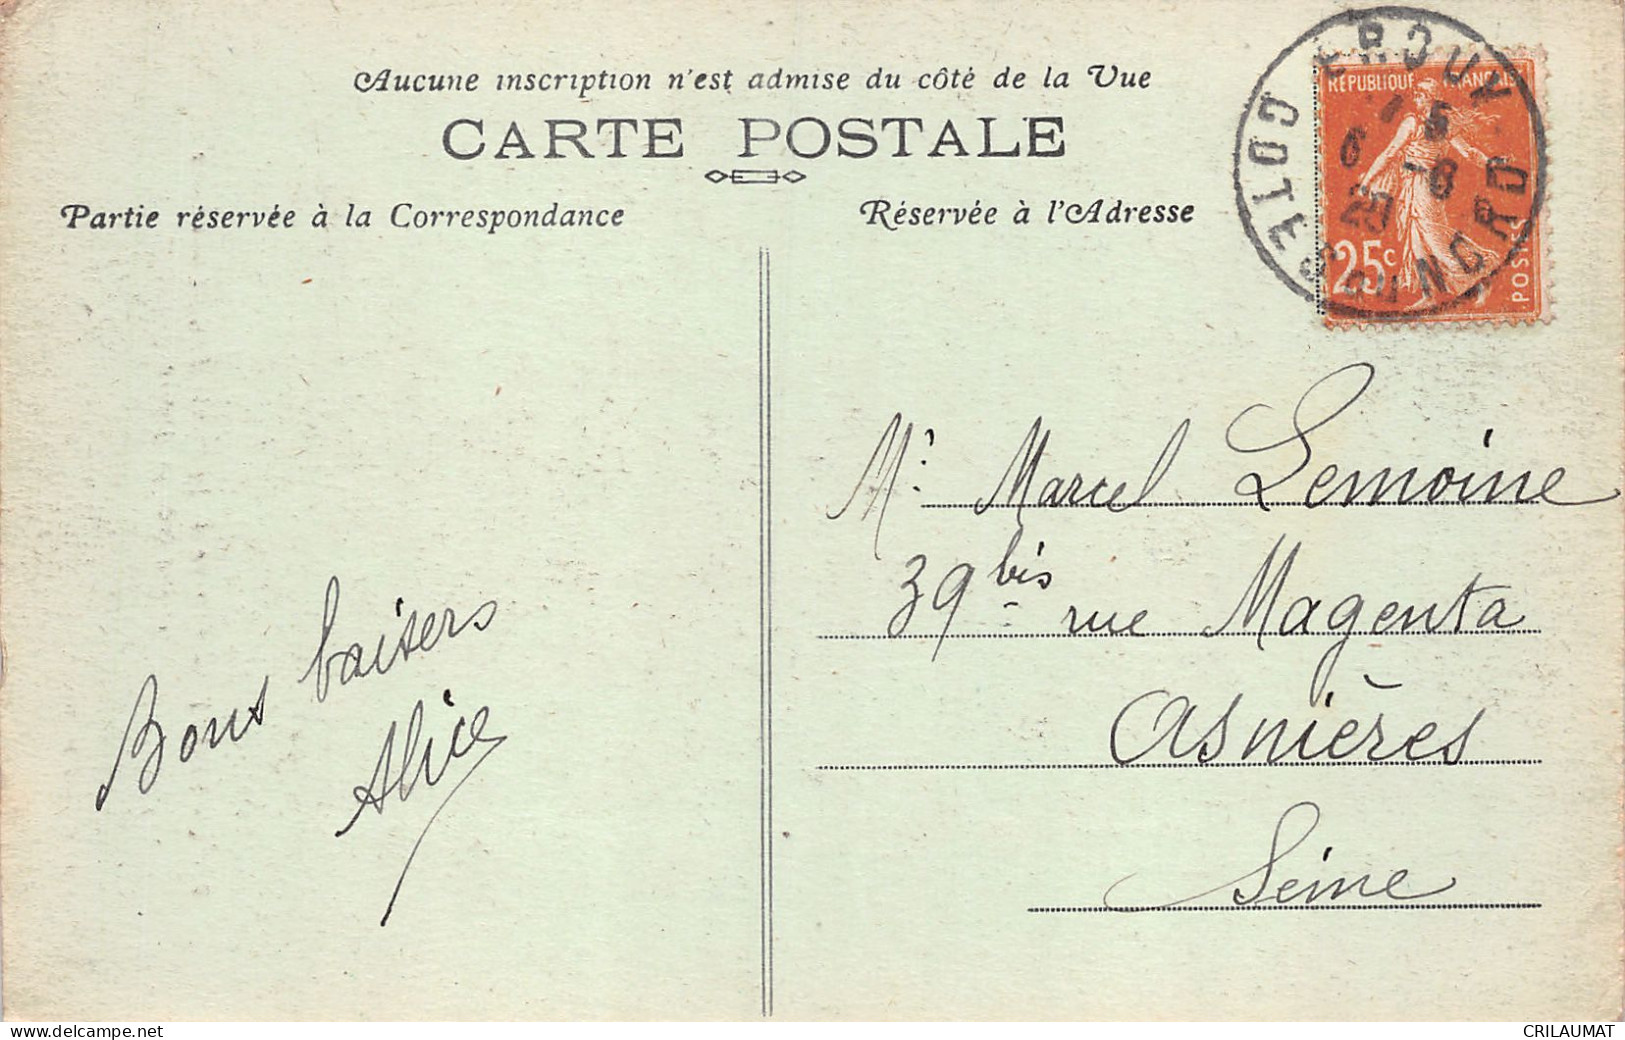 Aucune inscription n'est admise du côté de la Vue
CARTE POSTALE
Partie réservée à la Correspondance
Réservée à l'Adresse
RÉPUBLIQUE FRANÇAISE
25c
POSTES
CROUY
COTES DU NORD
6 -8
20
Mr. Marcel Lemoine
39 bis rue Magenta
Asnières
Seine
Bons baisers
Alice
www.delcampe.net
CRILAUMAT